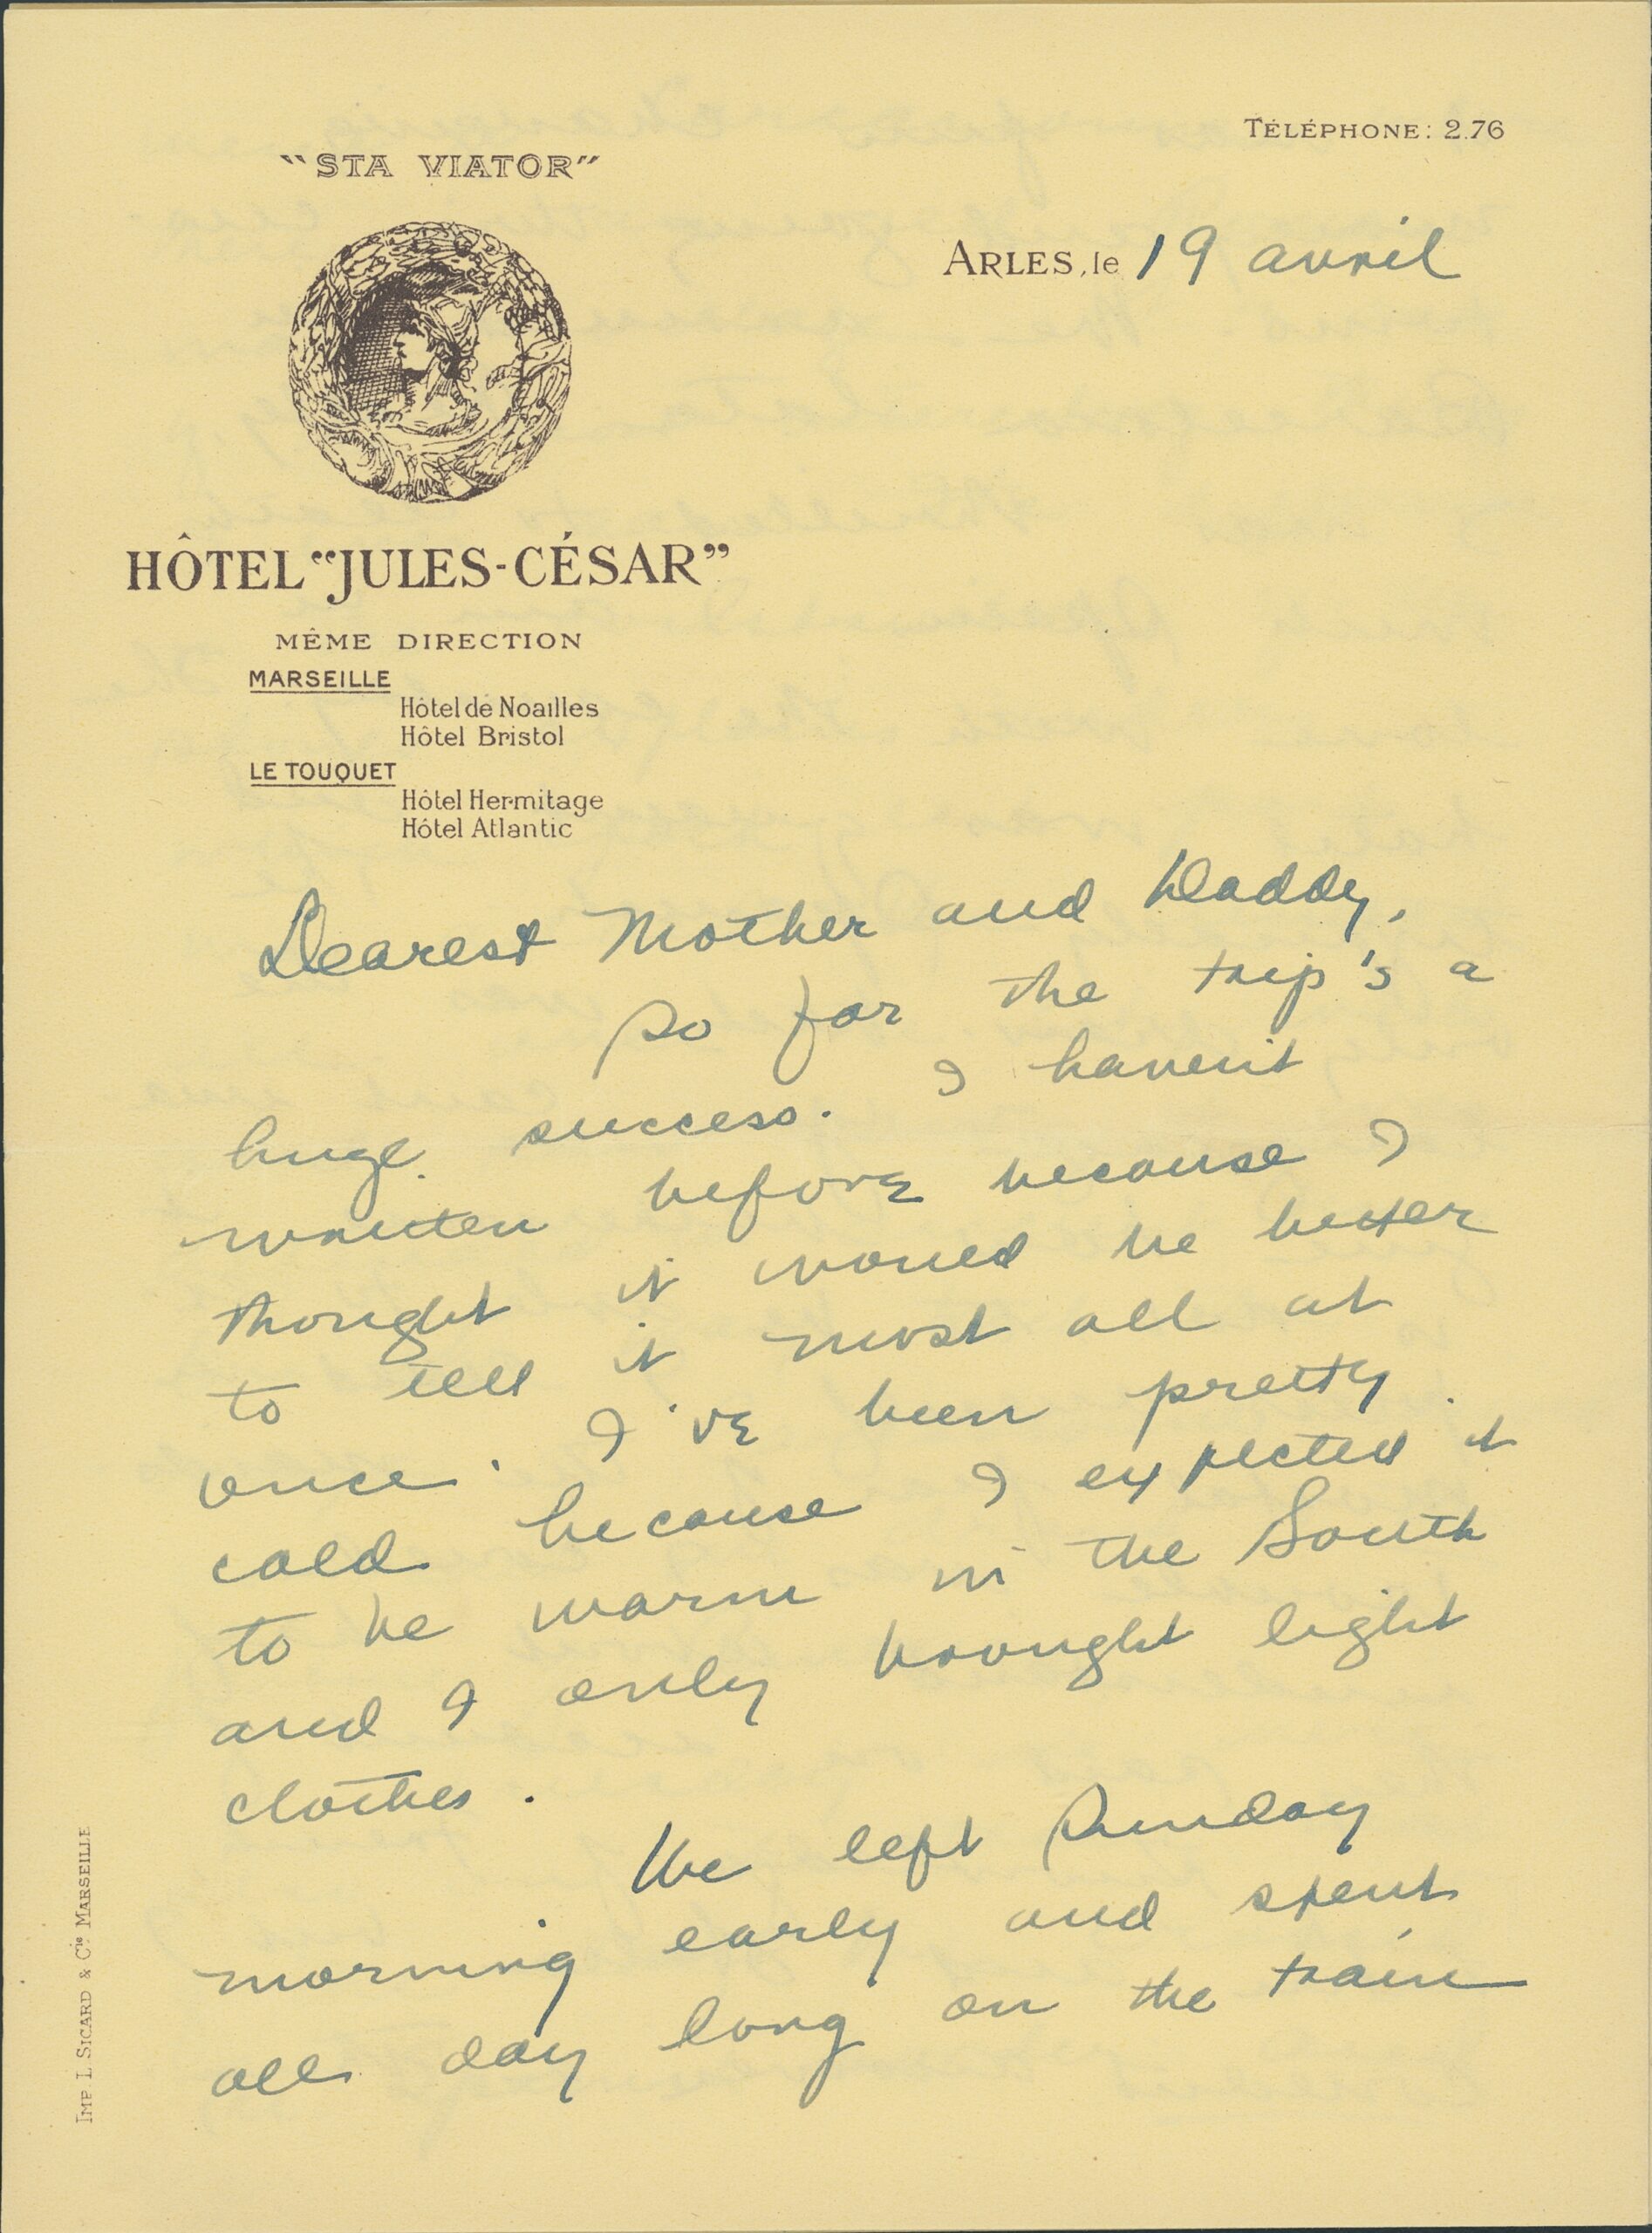 TÉLÉPHONE: 2.76
"STA VIATOR"
ARLES, le 19 avril
HÔTEL "JULES-CÉSAR"
MÊME DIRECTION
MARSEILLE
Hôtel de Noailles
Hôtel Bristol
LE TOUQUET
Hôtel Hermitage
Hôtel Atlantic
Dearest Mother and Daddy,
So far the trip's a
huge success. I haven't
written before because I
thought it would be better
to tell it most all at
once. I've been pretty
cold because I expected it
to be warm in the South
and I only brought light
clothes.
We left Sunday
morning early and spent
all day long on the train
IMP. L. SICARD & Cie MARSEILLE